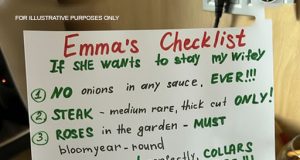 FOR ILLUSTRATIVE PURPOSES ONLY
Emma's Checklist
If SHE wants to stay my Wifey
1 NO onions in any sauce, EVER!!!
2 STEAK - medium rare, thick cut ONLY!
3 ROSES in the garden - MUST
bloom year-round
perfectly, COLLARS